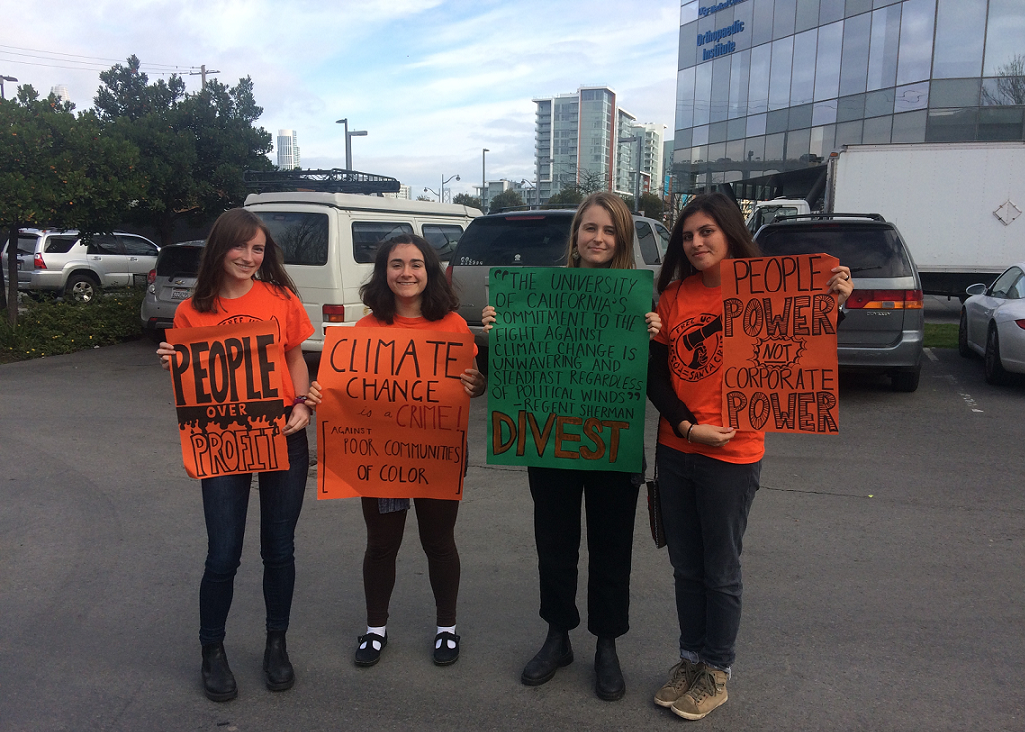 Orthopaedic
Institute
PEOPLE
OVER
PROFIT
CLIMATE
CHANGE
is a CRIME!
[AGAINST
POOR COMMUNITIES
OF COLOR]
"THE UNIVERSITY
OF CALIFORNIA'S
COMMITMENT TO THE
FIGHT AGAINST
CLIMATE CHANGE IS
UNWAVERING AND
STEADFAST REGARDLESS
OF POLITICAL WINDS"
-REGENT SHERMAN
DIVEST
FREE UC
SANTA CRUZ
PEOPLE
POWER
NOT
CORPORATE
POWER